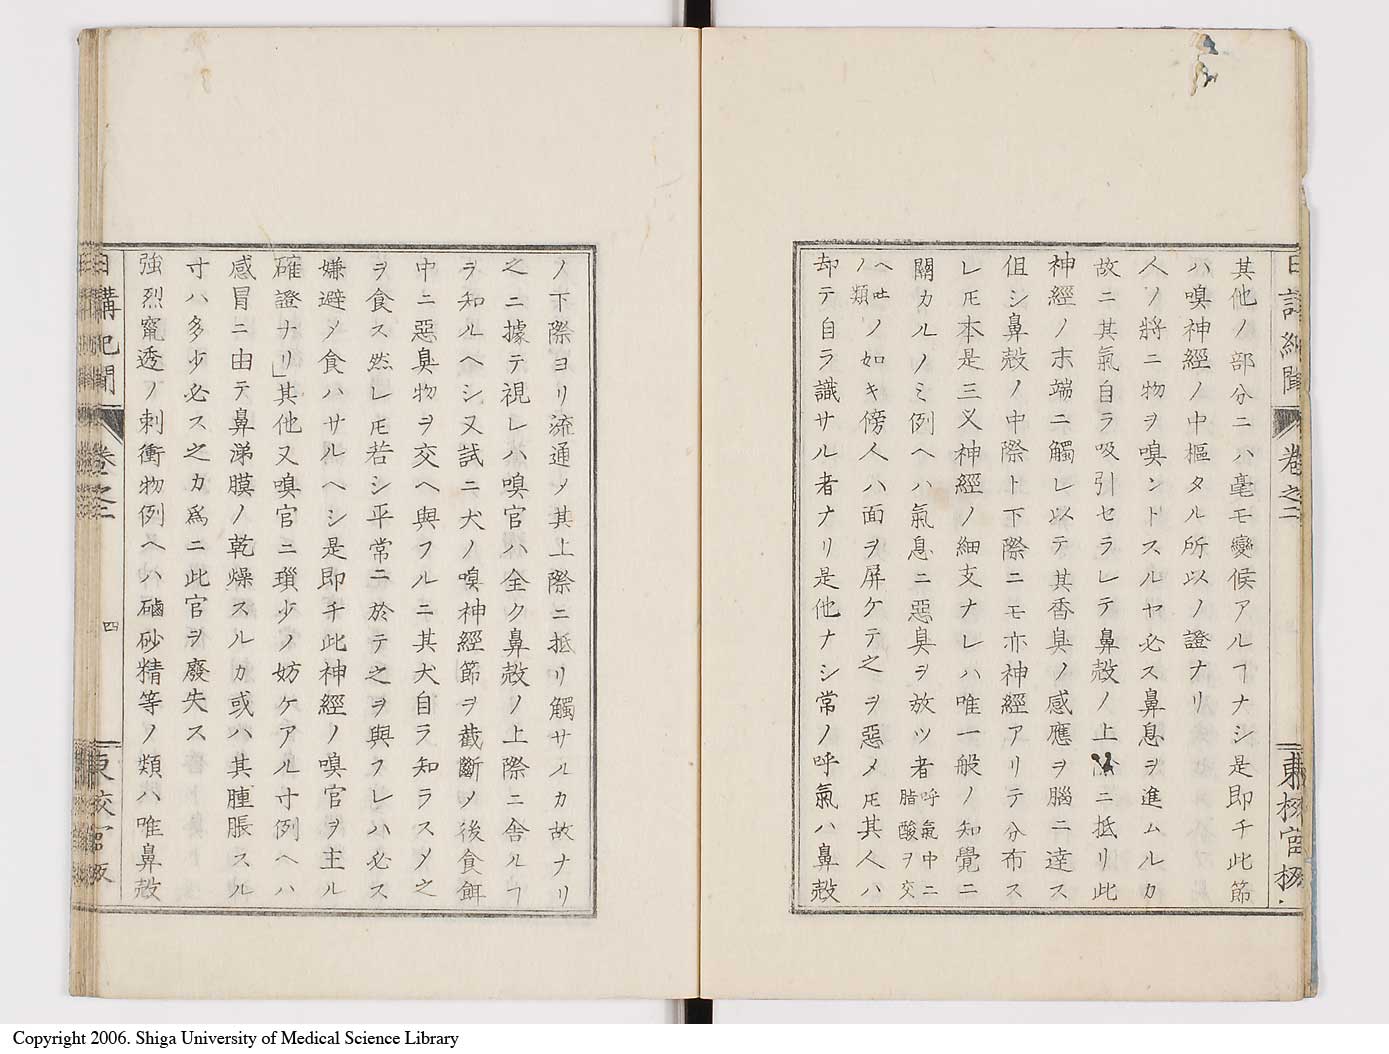 日講紀聞 卷之二 東校官板
其他ノ部分ニハ毫モ變候アルヿナシ是即チ此節
ハ嗅神經ノ中樞タル所以ノ證ナリ
人ノ將ニ物ヲ嗅ントスルヤ必ス鼻息ヲ進ムルカ
故ニ其氣自ラ吸引セラレテ鼻殼ノ上際ニ抵リ此
神經ノ末端ニ觸レ以テ其香臭ノ感應ヲ腦ニ達ス
但シ鼻殼ノ中際ト下際ニモ亦神經アリテ分布ス
レ𪜈本是三叉神經ノ細支ナレハ唯一般ノ知覺ニ
關カルノミ例ヘハ氣息ニ惡臭ヲ放ツ者
呼氣中ニ
脂酸ヲ交
ヘ
ノ類
ノ如キ傍人ハ面ヲ屏ケテ之ヲ惡メ𪜈其人ハ
却テ自ラ識サル者ナリ是他ナシ常ノ呼氣ハ鼻殼
ノ下際ヨリ流通メ其上際ニ抵リ觸サルカ故ナリ
之ニ據テ視レハ嗅官ハ全ク鼻殼ノ上際ニ舍ルヿ
ヲ知ルヘシ又試ニ犬ノ嗅神經節ヲ截斷メ後食餌
中ニ惡臭物ヲ交ヘ與フルニ其犬自ラ知ラスメ之
ヲ食ス然レ𪜈若シ平常ニ於テ之ヲ與フレハ必ス
嫌避メ食ハサルヘシ是即チ此神經ノ嗅官ヲ主ル
確證ナリ」其他又嗅官ニ瑣少ノ妨ケアル寸例ヘハ
感冒ニ由テ鼻涕膜ノ乾燥スルカ或ハ其腫脹スル
寸ハ多少必ス之カ爲ニ此官ヲ廢失ス
強烈竄透ノ刺衝物例ヘハ磠砂精等ノ類ハ唯鼻殼
日講紀聞 卷之二 四 東校官板
Copyright 2006. Shiga University of Medical Science Library